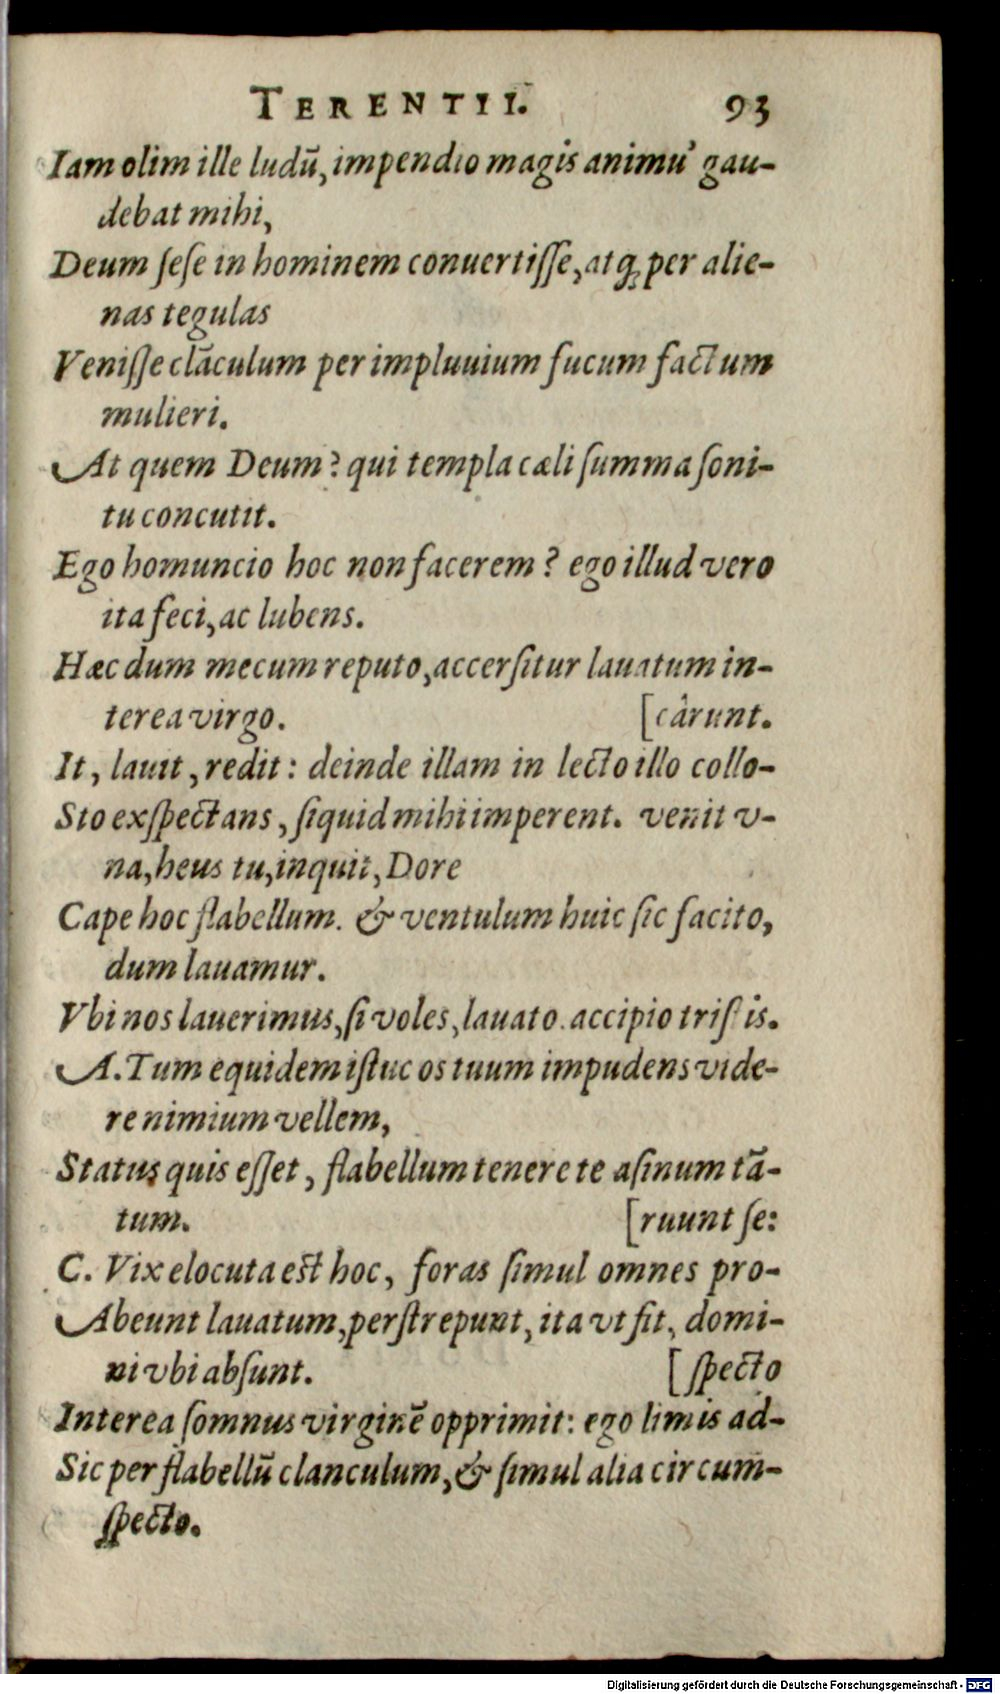 TERENTII. 93
Iam olim ille ludū, impendio magis animu' gau-
debat mihi,
Deum sese in hominem conuertisse, atq; per alie-
nas tegulas
Venisse clāculum per impluuium fucum factum
mulieri.
At quem Deum? qui templa cæli summa soni-
tu concutit.
Ego homuncio hoc non facerem? ego illud vero
ita feci, ac lubens.
Hæc dum mecum reputo, accersitur lauatum in-
terea virgo. [cârunt.
It, lauit, redit: deinde illam in lecto illo collo-
Sto exspectans, siquid mihi imperent. venit v-
na, heus tu, inquit, Dore
Cape hoc flabellum. & ventulum huic sic facito,
dum lauamur.
Vbi nos lauerimus, si voles, lauato. accipio tristis.
A. Tum equidem istuc os tuum impudens vide-
re nimium vellem,
Status quis esset, flabellum tenere te asinum tā-
tum. [ruunt se:
C. Vix elocuta est hoc, foras simul omnes pro-
Abeunt lauatum, perstrepunt, ita vt fit, domi-
ni vbi absunt. [specto
Interea somnus virginē opprimit: ego limis ad-
Sic per flabellū clanculum, & simul alia circum-
specto.
Digitalisierung gefördert durch die Deutsche Forschungsgemeinschaft - DFG